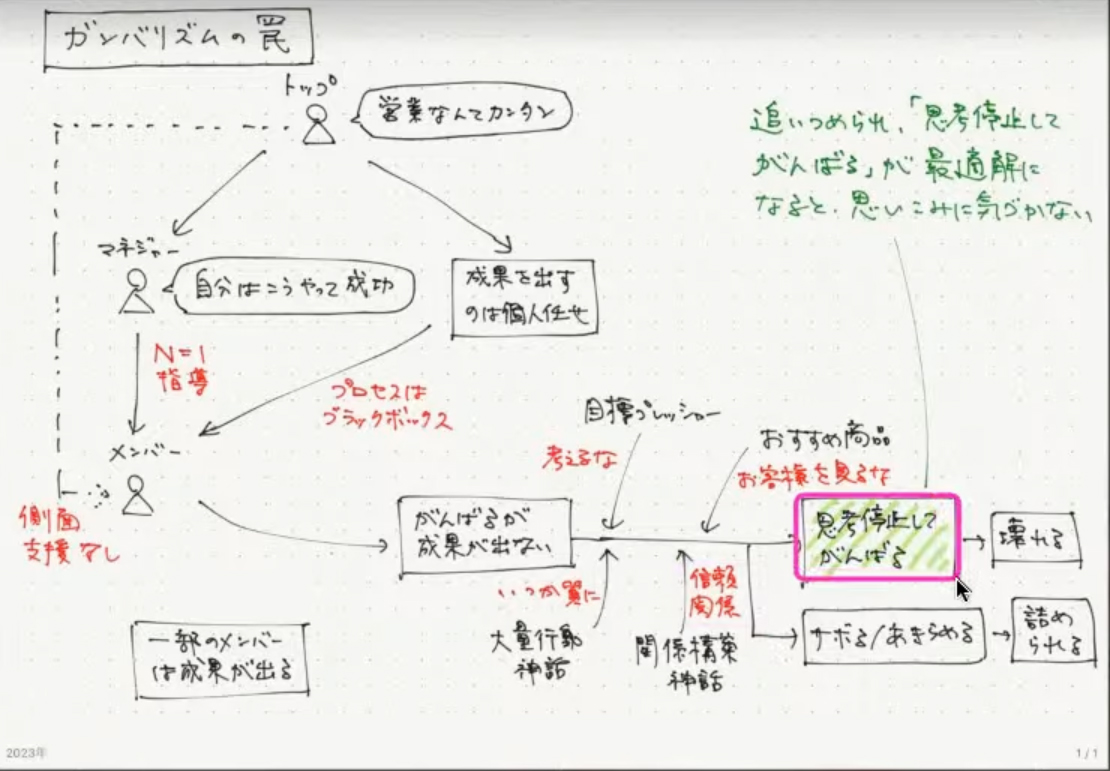 ガンバリズムの罠
トップ
営業なんてカンタン
追いつめられ、「思考停止して
がんばる」が最適解に
なると、思いこみに気づかない
マネジャー
自分はこうやって成功
成果を出す
のは個人任せ
N=1
指導
プロセスは
ブラックボックス
メンバー
側面
支援なし
目標プレッシャー
考えるな
おすすめ商品
お客様を見るな
がんばるが
成果が出ない
思考停止して
がんばる
壊れる
いつか質に
大量行動
神話
信頼
関係
関係構築
神話
サボる/あきらめる
詰め
られる
一部のメンバー
は成果が出る
2023年
1/1